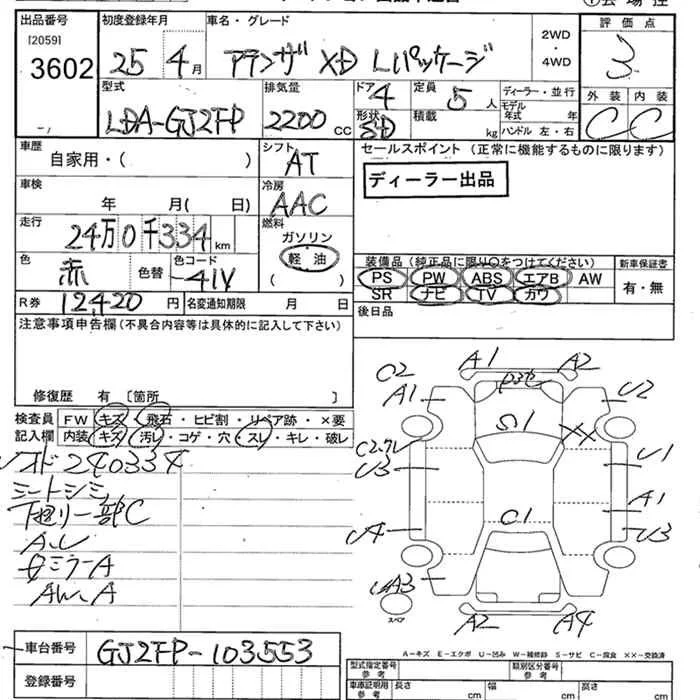 出品番号
[2059]
3602
初度登録年月
25 4月
車名・グレード
アテンザ XD Lパッケージ
2WD
・
4WD
評価点
3
外装 内装
C C
型式
LDA-GJ2FP
排気量
2200 CC
ドア 4
形状 SD
定員 5 人
積載 kg
ディーラー・並行
モデル
年式 年
ハンドル 左・右
車歴
自家用・( )
シフト
AT
セールスポイント (正常に機能するものに限ります)
ディーラー出品
車検
年 月( 日)
冷房
AAC
走行
24万0千334km
燃料
ガソリン
軽油
( )
色
赤
色替
色コード
-41V
装備品(純正品に限り○をつけてください)
PS PW ABS エアB AW
SR ナビ TV カワ
新車保証書
有・無
R券 12,420円
名変通知期限 月 日
後日品
注意事項申告欄(不具合内容等は具体的に記入して下さい)
修復歴 有 [箇所 ]
検査員
記入欄
FW キズ・飛石・ヒビ割・リペア跡・×要
内装 キズ・汚レ・コゲ・穴・スレ・キレ・破レ
240334
下廻リ一部C
A、U
ミラーA
AW、A
A1 A2
C2
A1
U2
S1
XX
U3
U1
A1
C1
U3
A3
スペア
A2 A4
A-キズ E-エクボ U-凹み W-補修跡 S-サビ C-腐食 ××-交換済
車台番号
GJ2FP-103553
登録番号
型式指定番号
参考
類別区分番号
参考
車庫証明用
参考
長さ cm 幅 cm 高さ cm